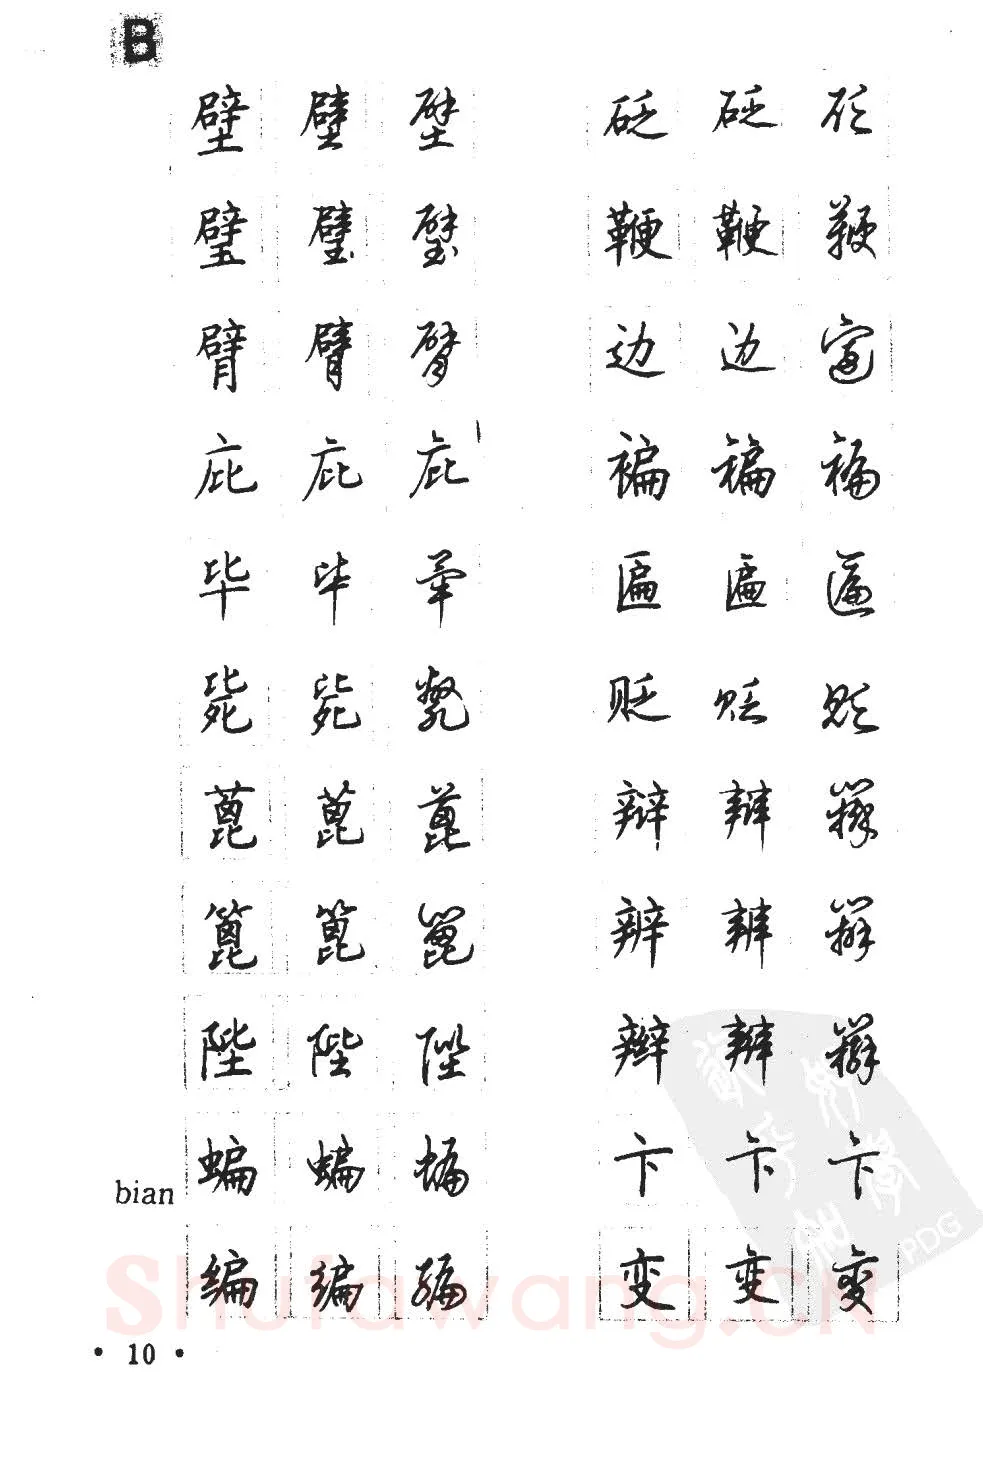 B
壁 壁 壁
璧 璧 璧
臂 臂 臂
庇 庇 庇
毕 毕 畢
毙 毙 斃
蓖 蓖 蓖
篦 篦 篦
陛 陛 陛
bian 蝙 蝙 蝙
编 编 編
砭 砭 砭
鞭 鞭 鞭
边 边 邊
褊 褊 褊
匾 匾 匾
贬 贬 貶
辩 辩 辯
辨 辨 辨
辫 辫 辮
卞 卞 卞
变 变 變
• 10 •
Shufawang.CN
PDG